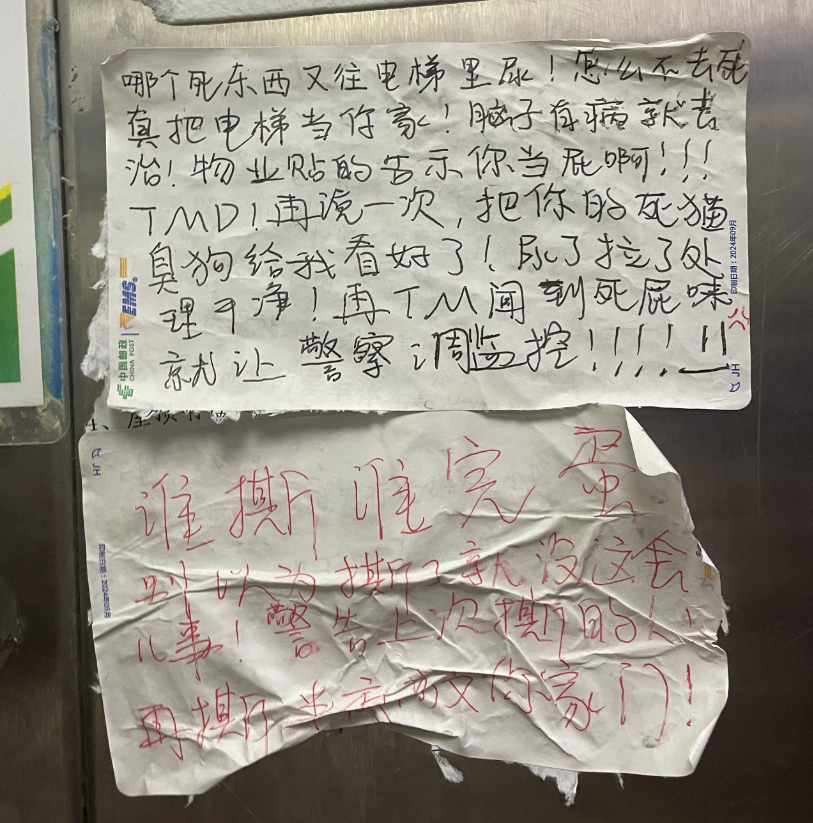 哪个死东西又往电梯里尿！怎么不去死
真把电梯当你家！脑子有病就去
治！物业贴的告示你当屁啊！！！
TMD！再说一次，把你的死猫
臭狗给我看好了！尿了拉了处
理干净！再TM闻到死屁味
就让警察调监控！！！！！！
EMS
中国邮政
CHINA POST
印制日期：2024年09月
JH
谁撕谁完蛋
别以为撕了就没这会
儿事！警告上次撕的人
再撕屎你家门！
JH
印制日期：2024年09月